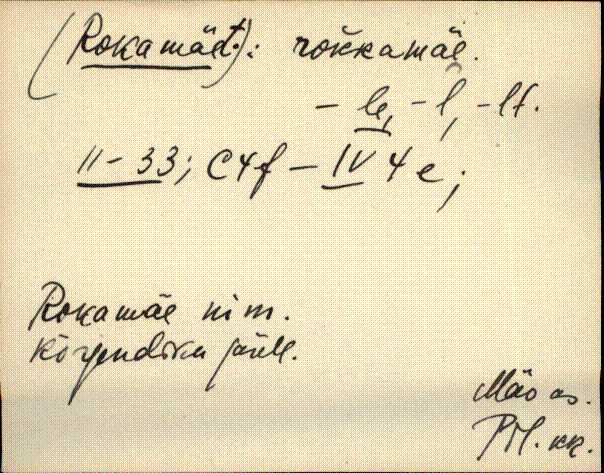 (Rokamäe†): rokkamäe.
- le, - l, - lt.
II - 33; C4f - IV 4 e;
Rokamäe nim.
kõrgendiku järele.
Mäo as.
PM. kk.